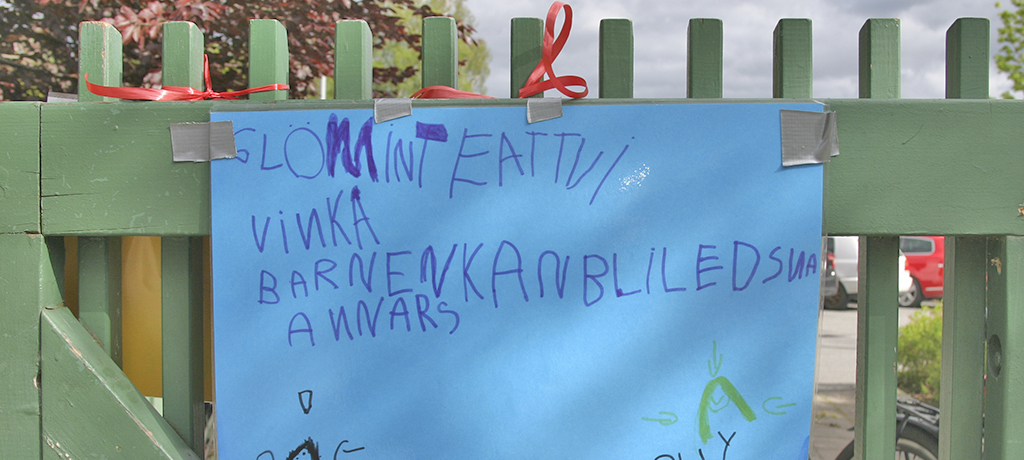 GLÖMINTEATTVI
VINKA
BARNENKANBLILEDSNA
ANNARS